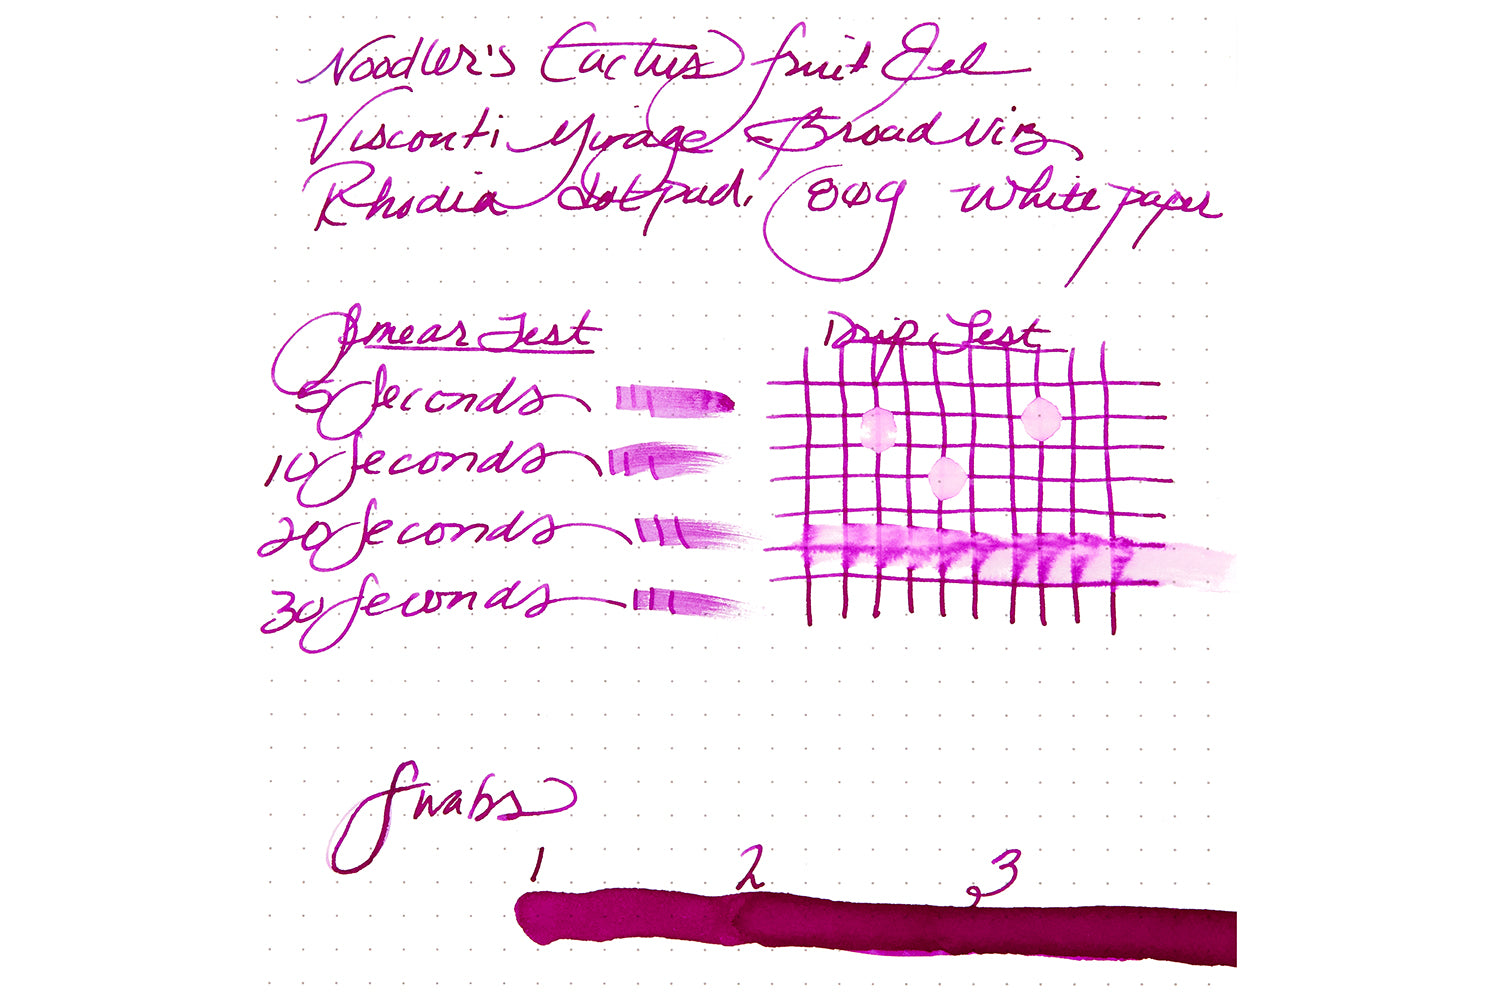 Noodler's Cactus fruit Eel
Visconti Mirage - Broad Nib
Rhodia dot pad. 80g White paper
Smear Test
5 Seconds
10 Seconds
20 Seconds
30 Seconds
Drip Test
Swabs
1 2 3